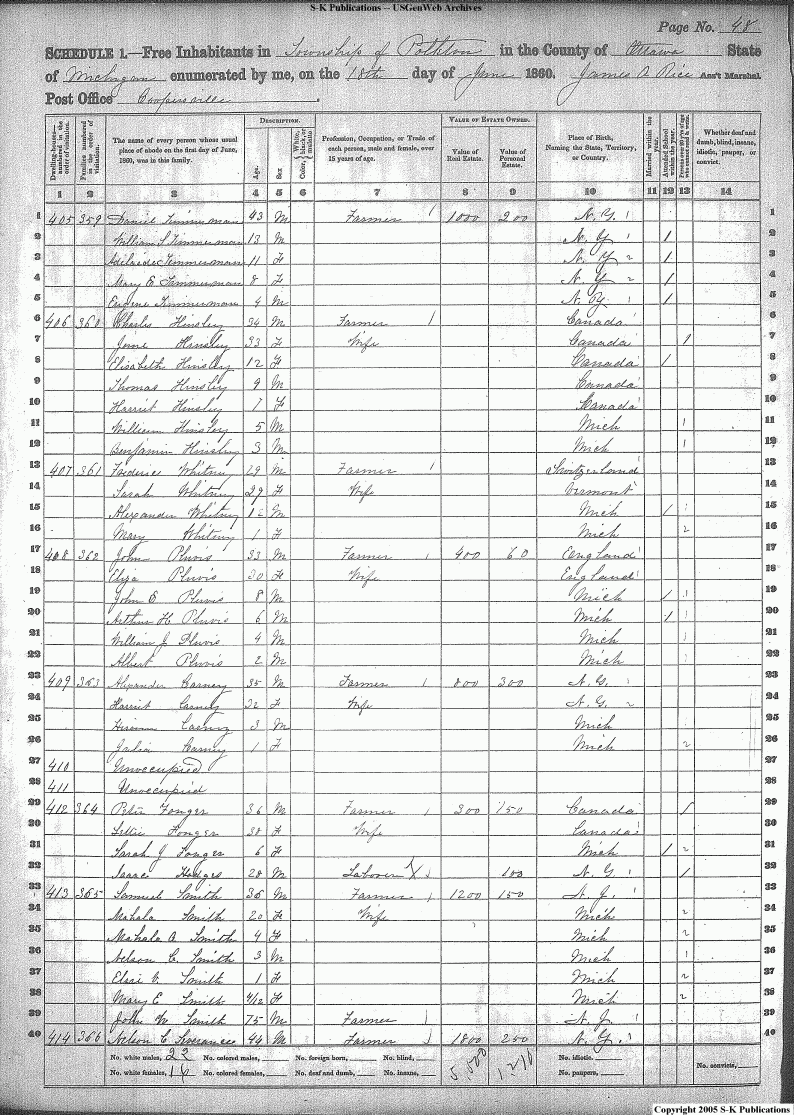 S-K Publications -- USGenWeb Archives
Page No. 48
SCHEDULE 1.—Free Inhabitants in Township of Polkton in the County of Ottawa State
of Michigan enumerated by me, on the 18th day of June 1860. James A Rice Ass't Marshal
Post Office Coopersville
Dwelling-houses—numbered in the order of visitation. Families numbered in the order of visitation. The name of every person whose usual place of abode on the first day of June, 1860, was in this family. DESCRIPTION. Age. Sex Color, White, black, or mulatto Profession, Occupation, or Trade of each person, male and female, over 15 years of age. VALUE OF ESTATE OWNED. Value of Real Estate. Value of Personal Estate. Place of Birth, Naming the State, Territory, or Country. Married within the year. Attended School within the year. Persons over 20 y'rs of age who cannot read & write. Whether deaf and dumb, blind, insane, idiotic, pauper, or convict.
1 2 3 4 5 6 7 8 9 10 11 12 13 14
1 405 359 Daniel Timmerman 43 M Farmer 1 1000 200 N. Y. 1 1
2 William S Timmerman 13 M N. Y 1 / 2
3 Adelaide Timmerman 11 F N. Y 2 / 3
4 Mary E Timmerman 8 F N. Y 2 / 4
5 Eugene Timmerman 4 M N. Y. 1 / 5
6 406 360 Charles Hinsley 34 M Farmer 1 Canada 6
7 Jane Hinsley 33 F Wife Canada / 7
8 Elisabeth Hinsley 12 F Canada / 8
9 Thomas Hinsley 9 M Canada 9
10 Harriet Hinsley 7 F Canada 10
11 William Hinsley 5 M Mich 1 11
12 Benjamin Hinsley 3 M Mich 1 12
13 407 361 Frederic Whitney 29 M Farmer 1 Switzerland 13
14 Sarah Whitney 29 F Wife Vermont 14
15 Alexander Whitney M Mich / 1 15
16 Mary Whitney 1 F Mich 2 16
17 408 362 John Pluvis 33 M Farmer 1 400 60 Eengland 17
18 Eliza Pluvis 30 F Wife England 18
19 John E Pluvis 8 M Mich / 1 19
20 Arthur H Pluvis 6 M Mich / 1 20
21 William J Pluvis 4 M Mich 1 21
22 Albert Pluvis 2 M Mich 1 22
23 409 363 Alexander Carney 35 M Farmer 1 800 300 N. Y. 1 23
24 Harriet Carney 32 F Wife N. Y. 2 24
25 Hiram Carney 3 M Mich 1 25
26 Julia Carney 1 F Mich 2 26
27 410 Unoccupied 27
28 411 Unoccupied 28
29 412 364 Peter Fonger 36 M Farmer 1 300 150 Canada / 29
30 Lettie Fonger 38 F Wife Canada 30
31 Sarah J Fonger 6 F Mich / 2 31
32 Isaac Hodges 28 M Laborer X 100 N. Y. / 32
33 413 365 Samuel Smith 36 M Farmer 1 1200 150 N. J. 33
34 Mahala Smith 20 F Wife Mich 2 34
35 Mahala A Smith 4 F Mich 2 35
36 Nelson C. Smith 3 M Mich 1 36
37 Elsie V. Smith 1 F Mich 2 37
38 Mary E Smith 4/12 F Mich 2 38
39 John W Smith 75 M Farmer N. J. 39
40 414 366 Nelson C Severance 44 M Farmer 1800 250 N. Y. 40
No. white males, 22 No. colored males, No. foreign born, No. blind, 5,500 1,210 No. idiotic, No. convicts,
No. white females, 16 No. colored females, No. deaf and dumb, No. insane, No. paupers,
Copyright 2005 S-K Publications